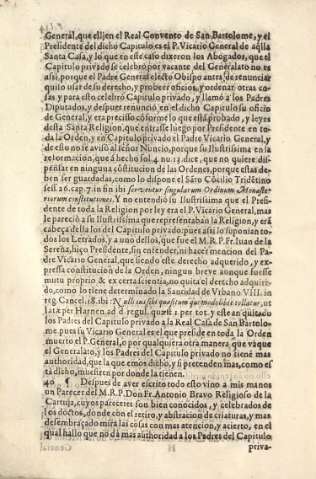 General, que elijen el Real Convento de San Bartolome, y el
Presidente del dicho Capitulo es el P. Vicario General de aq̃lla
Santa Casa, y lo que en este caso dixeron los Abogados, que el
Capitulo privado se celebrò por vacante del Generalato no es
assi, porque el Padre General electo Obispo antes de renunciar
quiso usar de su derecho, y proveer oficios, y ordenar otras co-
sas y para esto celebrò Capitulo privado, y llamò a los Padres
Diputados, y despues renunciò en el dicho Capitulo su oficio
de General, y era preciso cõforme lo que està probado, y leyes
desta Santa Religion, que entrasse luego por Presidente en to-
da la Orden, y en Capitulo privado el Padre Vicario General, y
de esto no se avisò al señor Nuncio, porque su Ilustrissima en la
reformacion, que à hecho sol. 4. nu. 13. dice, que no quiere dis-
pensar en ninguna cõstitucion de las Ordenes, porque estas de-
ben ser guardadas, como lo dispone el Sãto Cõcilio Tridẽtino
sess. 26. cap. 7. in fin ibi serventur singularum Ordinum Monaste-
riorum constitutiones. Y no entendiò su Ilustrissima que el Presi-
dente de toda la Religion por ley era el P. Vicario General, mas
le pareciò a su Ilustrissima que representaban la Religion, y erã
cabeça della los del Capitulo privado: pues assi lo suponian to-
dos los Letrados, y a uno dellos, que fue el M.R.P. Fr. Iuan de la
Serena, hijo Presidente, sin entender, ni hacer mencion del Pa-
dre Vicario General, que siendo este derecho adquerido, y ex-
pressa constitucion de la Orden, ningun breve aunque fuesse
mutu proprio & ex certa scientia, no quita el derecho adquiri-
do, como lo tiene determinado la Santidad de Urbano VIII. in
reg. Cancel. 18. ibi:
los Padres del Capitulo privado a la Real Casa de San Bartolo-
me pues su Vicario General es el que preside en toda la Orden
muerto el P. General, o por qualquiera otra manera, que vàque
el Generalato, y los Padres del Capitulo privado no tienē mas
authoridad, que la que emos dicho, y si pretenden mas, como es
tà dicho, muestrẽ por donde la tienen.
40 ¶ Despues de aver escrito todo esto vino a mis manos
un Parecer del M.R.P. Don Fr. Antonio Bravo Religioso de la
Cartuja, cuyos pareceres son bien conocidos, y celebrados de
los doctos, donde con el retiro, y abstraccion de criaturas, y mas
desembraçado mira las cosas con mas atencion, y acierto, en el
qual hallo que no dà mas authoridad a los Padres del Capitulo
priva-